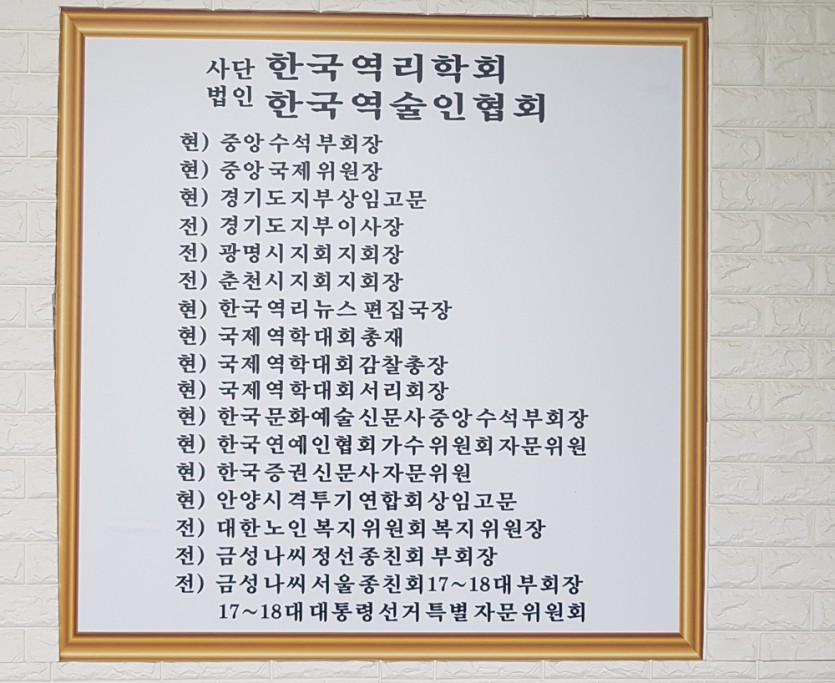 사단 한국역리학회
법인 한국역술인협회
현) 중앙수석부회장
현) 중앙국제위원장
현) 경기도지부상임고문
전) 경기도지부이사장
전) 광명시지회지회장
전) 춘천시지회지회장
현) 한국역리뉴스 편집국장
현) 국제역학대회총재
현) 국제역학대회감찰총장
현) 국제역학대회서리회장
현) 한국문화예술신문사중앙수석부회장
현) 한국연예인협회가수위원회자문위원
현) 한국증권신문사자문위원
현) 안양시격투기연합회상임고문
전) 대한노인복지위원회복지위원장
전) 금성나씨정선종친회부회장
전) 금성나씨서울종친회17~18대부회장
17~18대대통령선거특별자문위원회